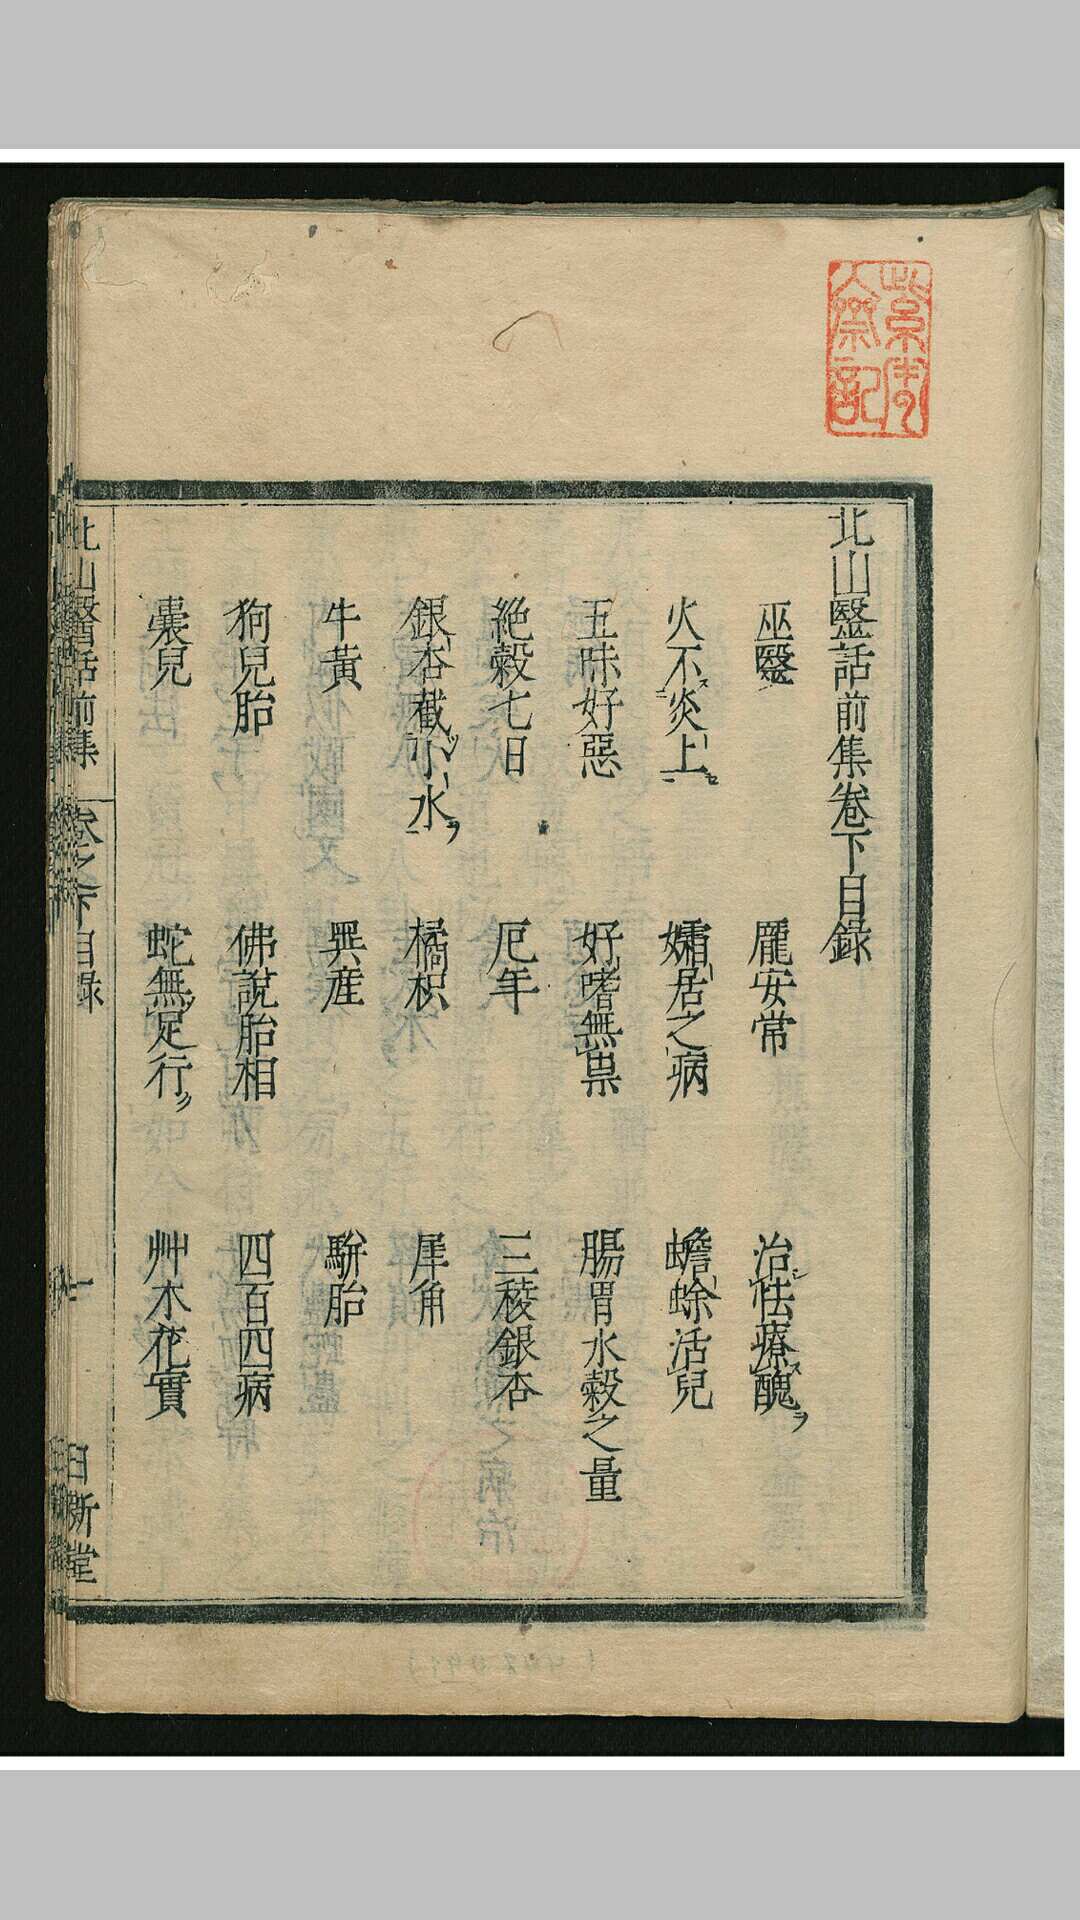 北山毉話前集卷下目錄
巫毉 龐安常 治怯療醜ヲ
火不炎上 孀居之病 蟾蜍活兒
五味好惡 好嗜無祟 腸胃水穀之量
絶穀七日 厄年 三稜銀杏
銀杏截小水ヲ 橘枳 犀角
牛黃 異産 騈胎
狗兒胎 佛說胎相 四百四病
囊兒 蛇無足行ク 艸木花實
北山醫話前集 卷之下目錄 一 日新堂